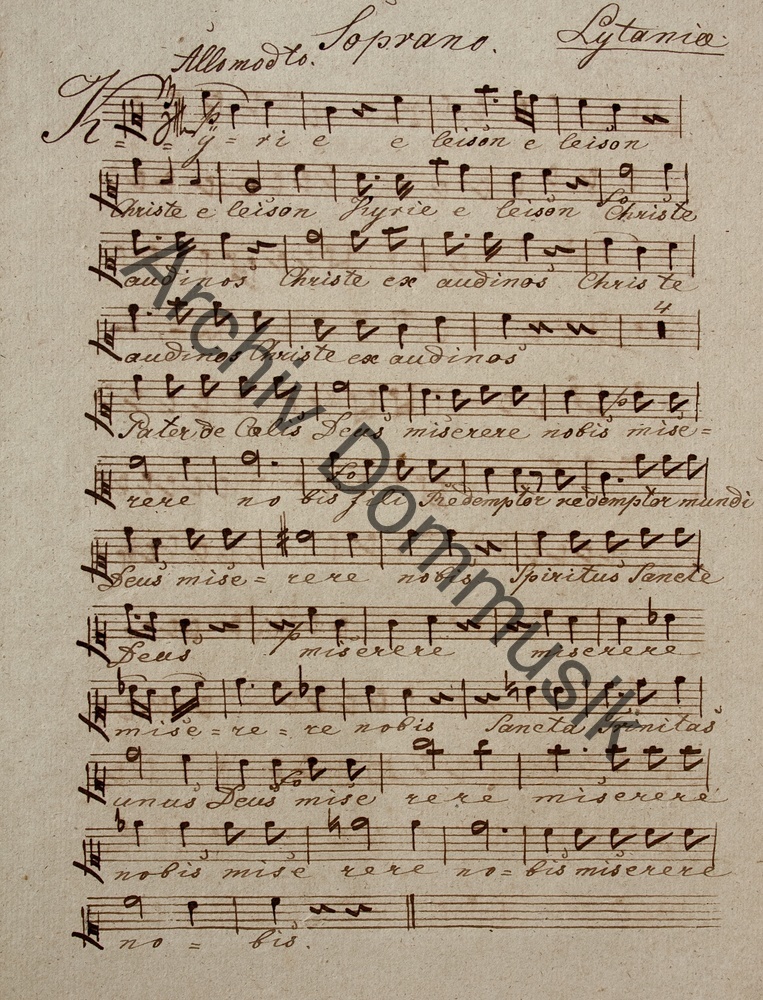 Soprano. Lytaniæ.
Allo modto.
Kÿ = ri e e leison e leison
Christe e leison Kyrie e leison Christe
audinos Christe ex audinos Christe
4
audinos Christe ex audinos
Pater de Cœlis Deus miserere nobis mise=
rere no bis fili Redemptor redemptor mundi
Deus mise = rere nobis Spiritus Sancte
Deus miserere miserere
mise = re = re nobis Sancta Trinitas
unus Deus mise rere miserere
nobis mise rere no = bis miserere
no = bis.
Archiv Dommusik